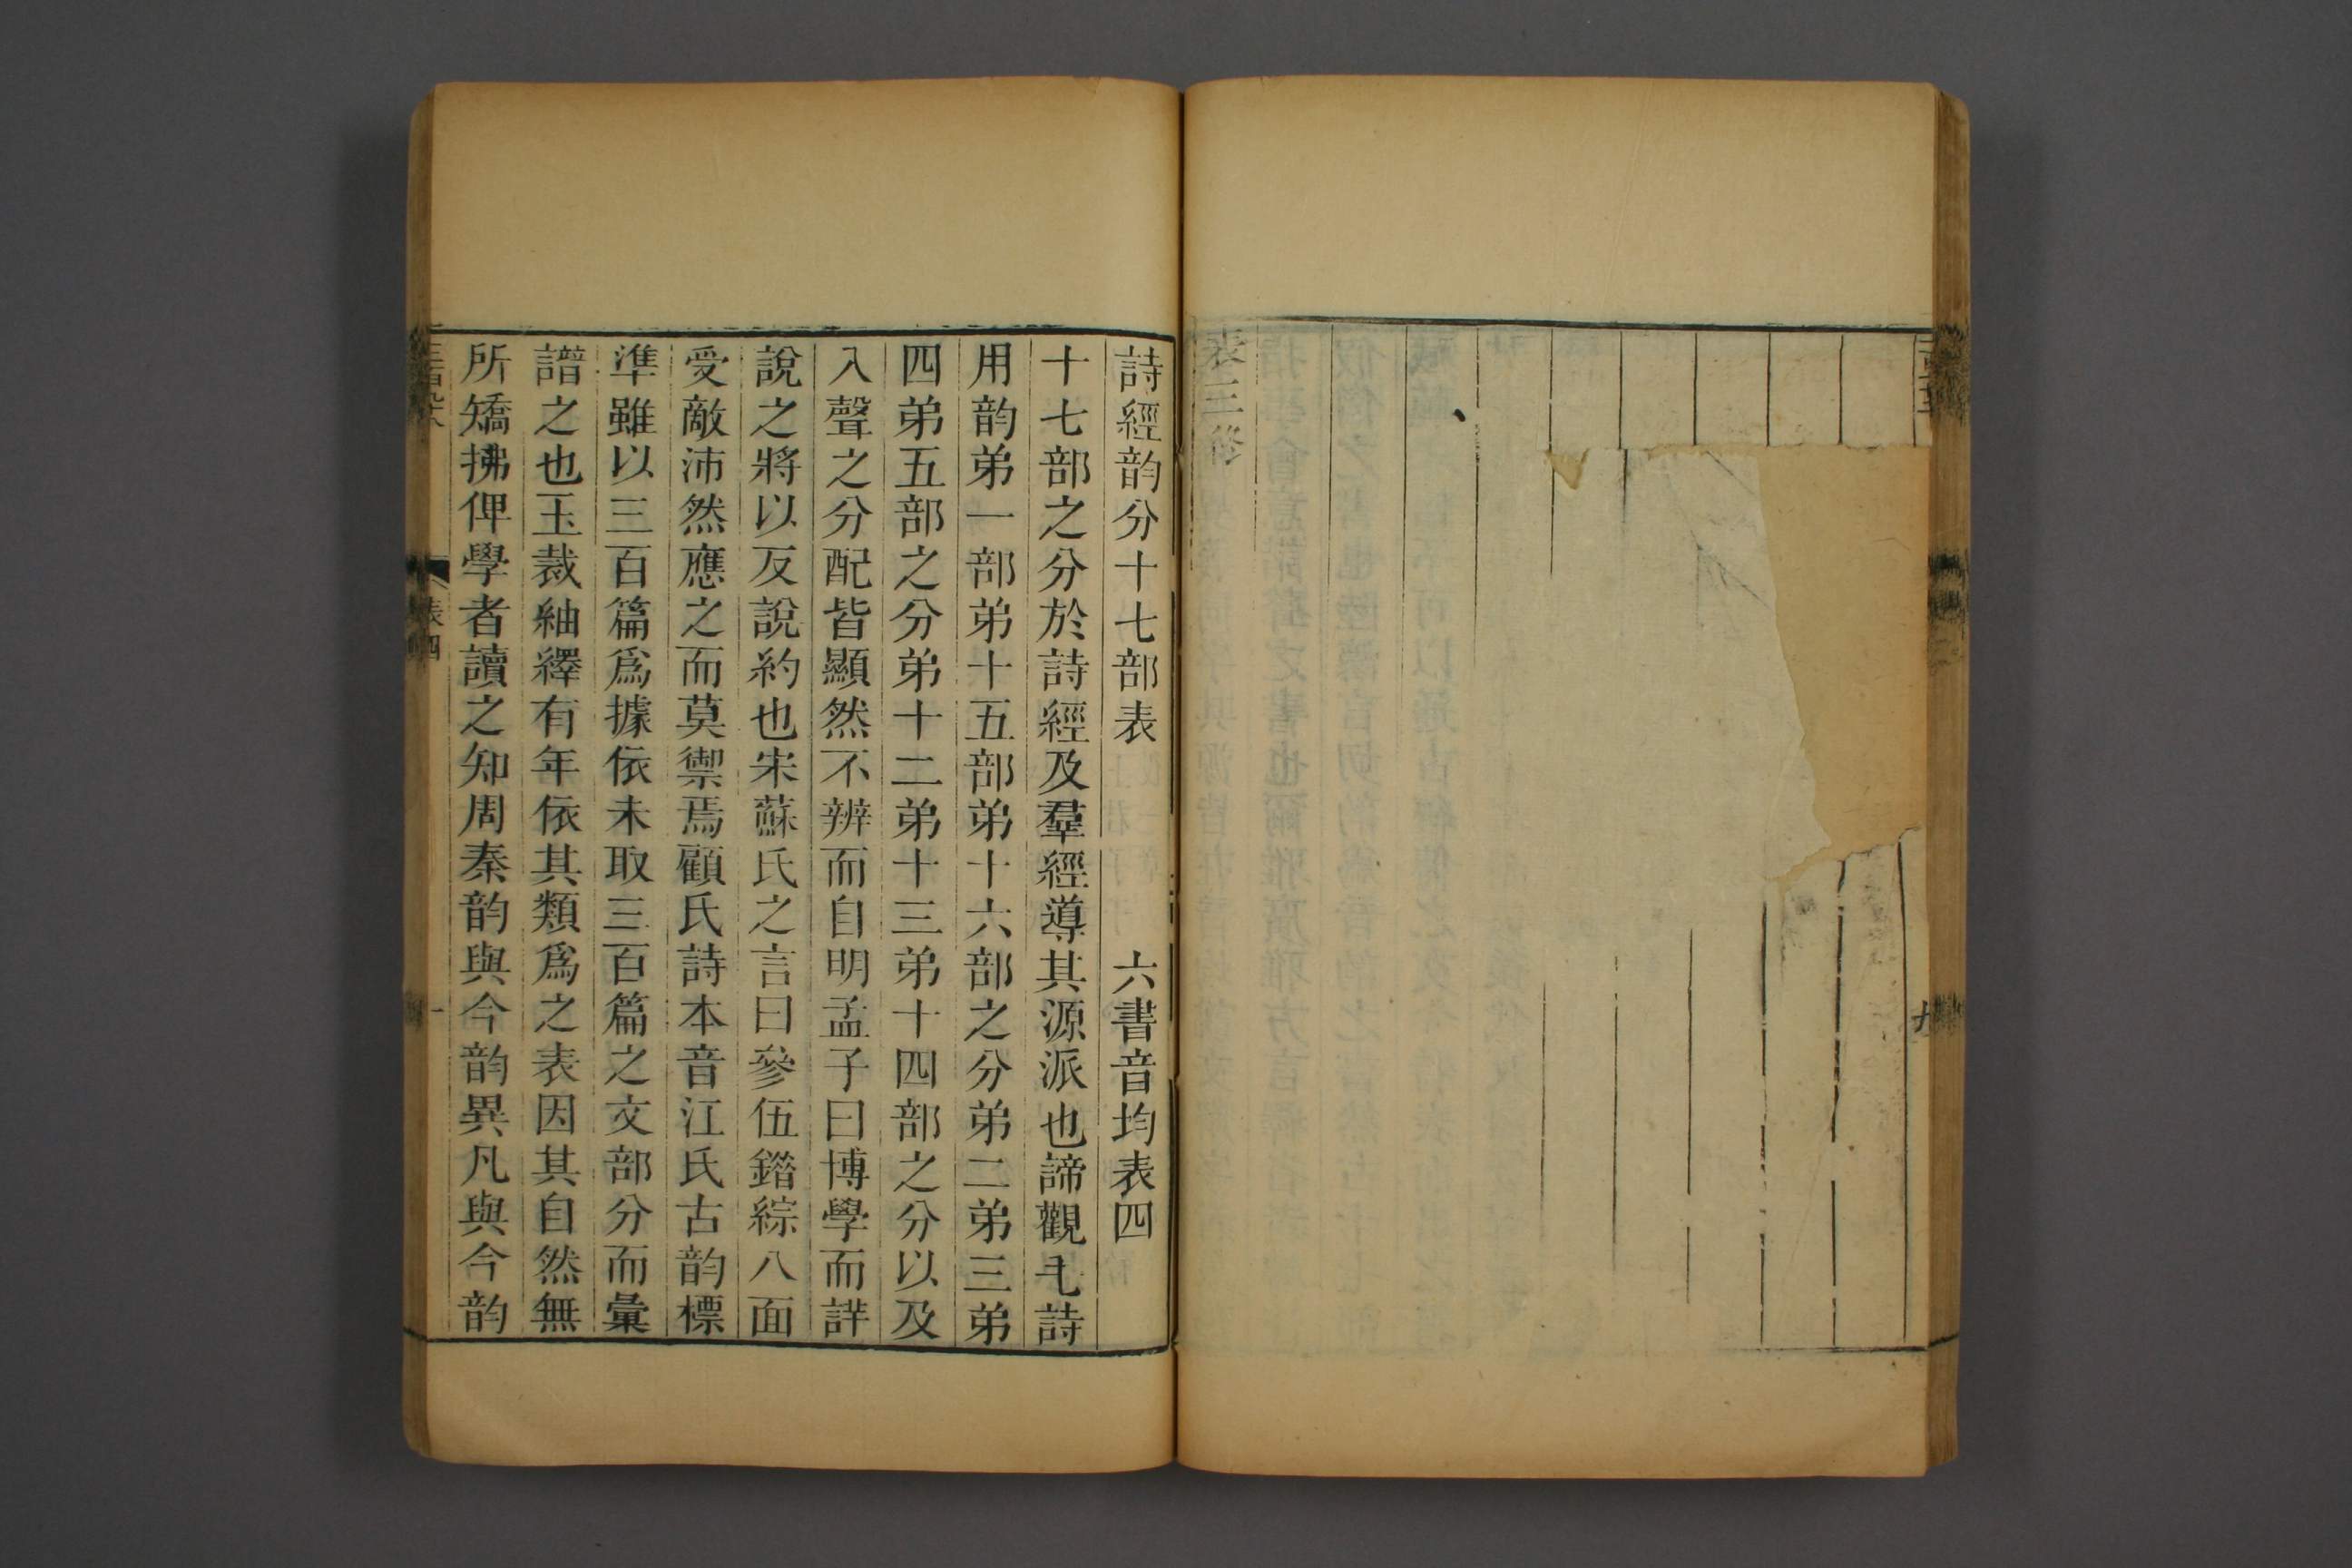 詩經韵分十七部表　六書音均表四
十七部之分於詩經及羣經導其源派也諦觀毛詩
用韵弟一部弟十五部弟十六部之分弟二弟三弟
四弟五部之分弟十二弟十三弟十四部之分以及
入聲之分配皆顯然不辨而自明孟子曰博學而詳
說之將以反說約也宋蘇氏之言曰參伍錯綜八面
受敵沛然應之而莫禦焉顧氏詩本音江氏古韵標
準雖以三百篇爲據依未取三百篇之文部分而彙
譜之也玉裁紬繹有年依其類爲之表因其自然無
所矯拂俾學者讀之知周秦韵與今韵異凡與今韵
表四
一